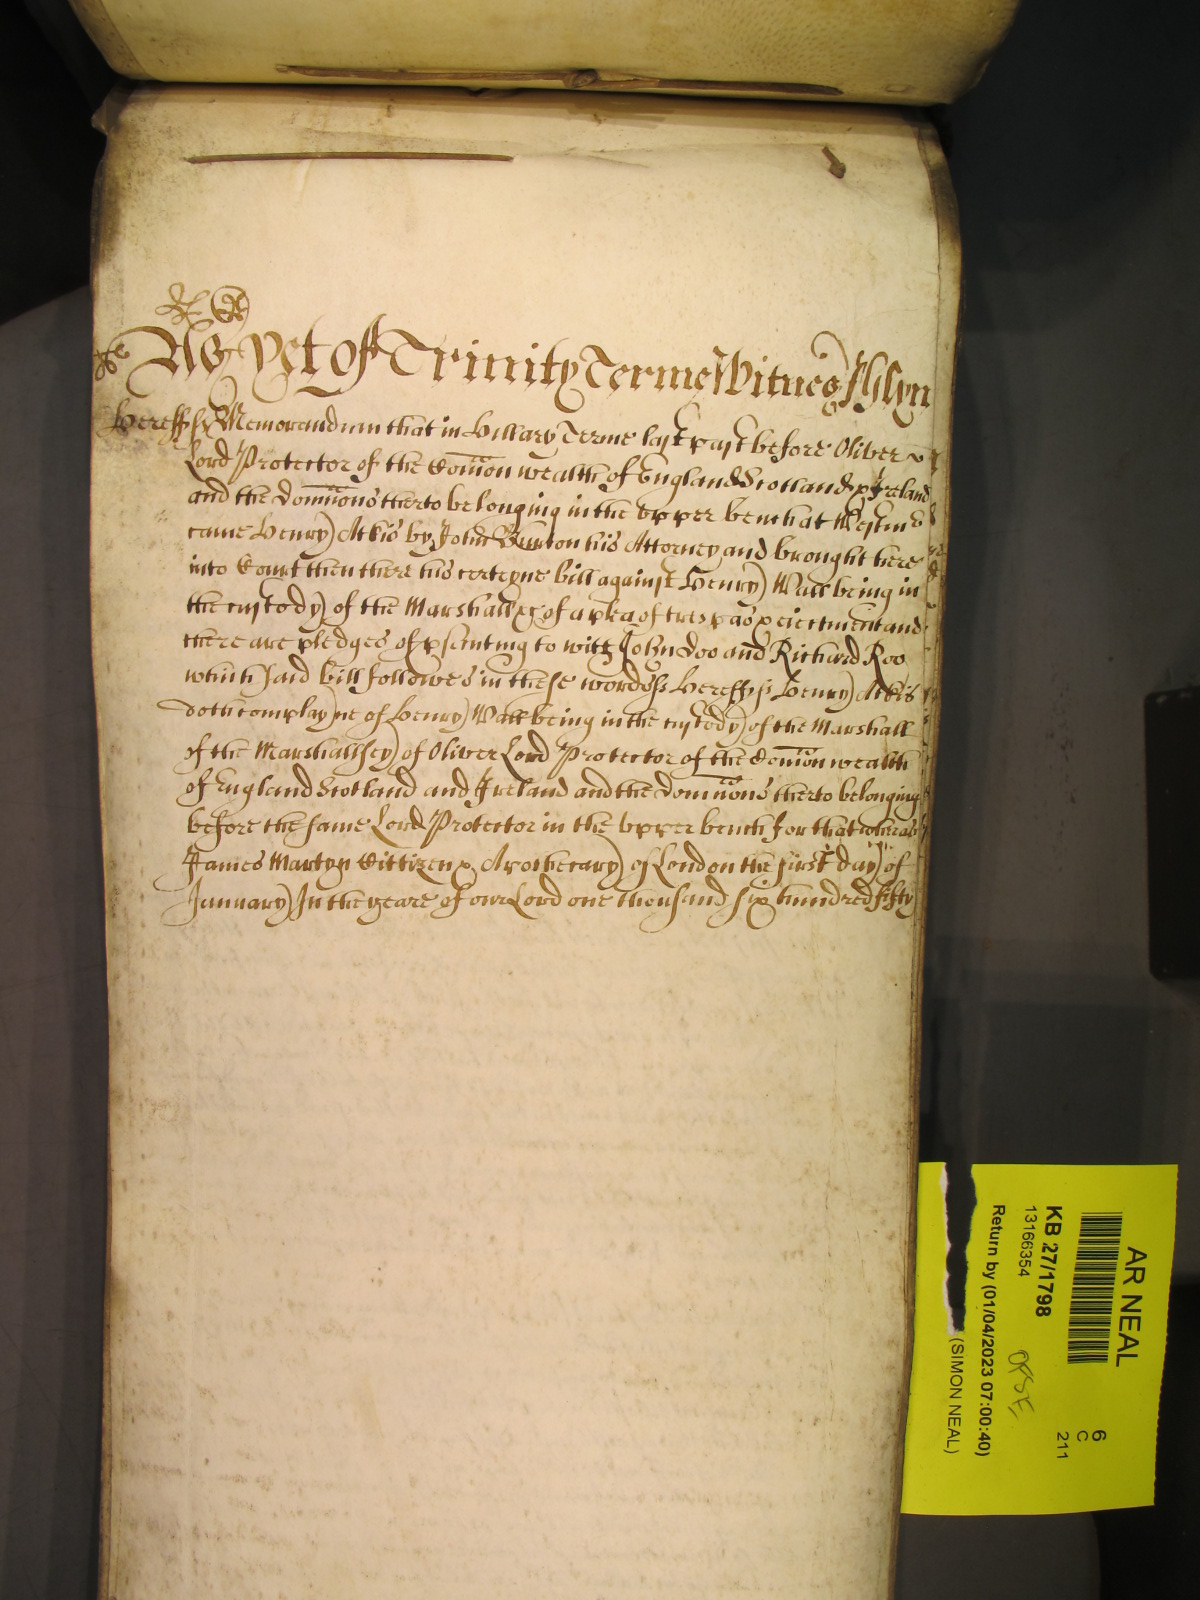 As Yet of Trinity Terme Witnes Glyn
Hereff ss Memorandum that in Hillary Terme last past before Oliver
Lord Protector of the Com̄on wealth of England Scotland & Ireland
and the Domin̄ons therto belonging in the vpper bench at Westm
came Henry Atkis by John Burton his Attorney and brought here
into Court then there his certeyne bill against Henry Wall being in
the custody of the Marshall &c of a plea of trespas & eiectment and
there are pledges of psenting to witt John Doo and Richard Roo
which said bill followes in these words ss Hereff ss Henry Atkis
doth complayne of Henry Wall being in the custody of the Marshall
of the Marshallsey of Oliver Lord Protector of the Com̄on wealth
of England Scotland and Ireland and the Domin̄ons therto belonging
before the same Lord Protector in the vpper bench For that wheras
James Martyn Cittizen & Apothecary of London the first day of
January In the yeare of our Lord one thousand six hundred fifty
AR NEAL
6
C
211
KB 27/1798
13166354
Return by (01/04/2023 07:00:40)
(SIMON NEAL)